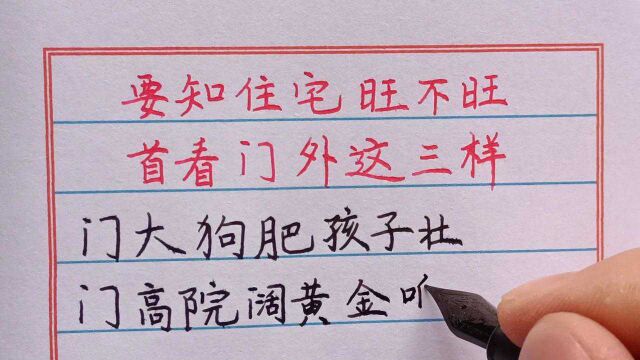 要知住宅旺不旺
首看门外这三样
门大狗肥孩子壮
门高院阔黄金